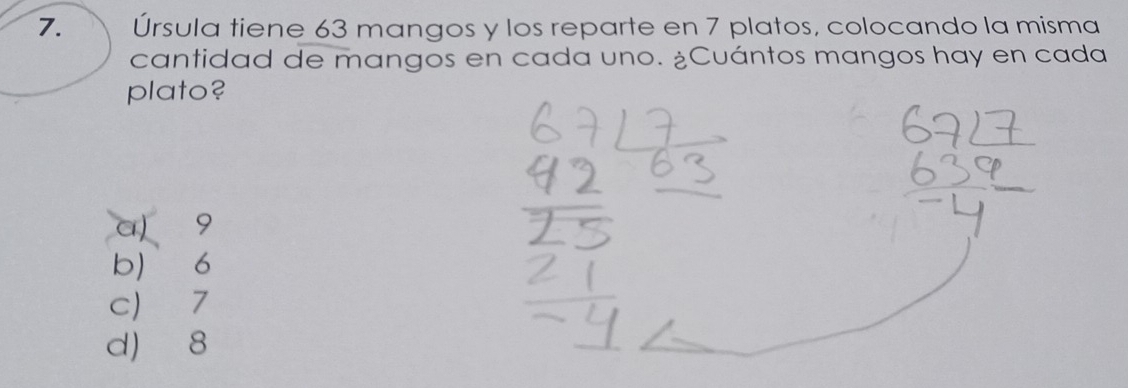 7. Úrsula tiene 63 mangos y los reparte en 7 platos, colocando la misma
cantidad de mangos en cada uno. ¿Cuántos mangos hay en cada
plato?
67 7
42 63
25
21
-4
67 7
63 9
-4
a) 9
b) 6
c) 7
d) 8